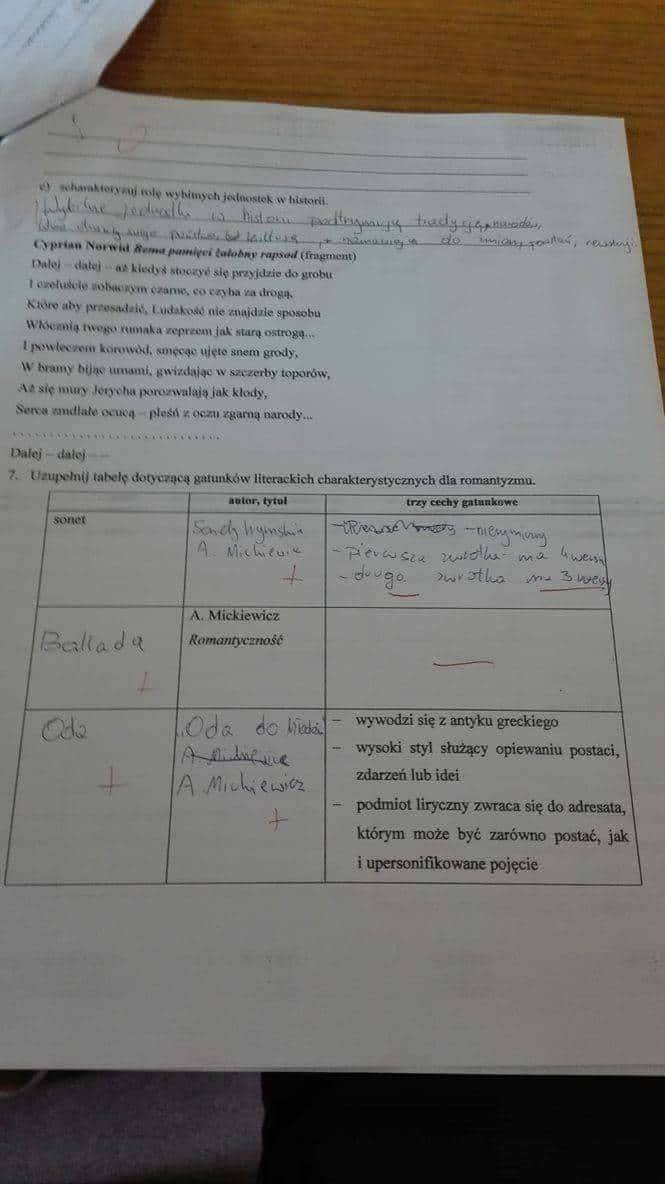 e) scharakteryzuj rolę wybitnych jednostek w historii.
Wybitne jednostki w historii podtrzymują tradycję narodu,
do zmiany postaw,
Cyprian Norwid Bema pamięci żałobny rapsod (fragment)
Dalej – dalej – aż kiedyś stoczyć się przyjdzie do grobu
I czeluście zobaczym czarne, co czyha za drogą,
Które aby przesadzić, Ludzkość nie znajdzie sposobu
Włócznią twego rumaka zeprzem jak starą ostrogą...
I powleczem korowód, smęcąc ujęte snem grody,
W bramy bijąc urnami, gwizdając w szczerby toporów,
Aż się mury Jerycha porozwalają jak kłody,
Serca zmdlałe ocucą – pleśń z oczu zgarną narody...
. . . . . . . . . . . . . . . . . . . . . . . . . . . . .
Dalej – dalej — —
7. Uzupełnij tabelę dotyczącą gatunków literackich charakterystycznych dla romantyzmu.
autor, tytuł trzy cechy gatunkowe
sonet
- nierymowy
A. Mickiewicz - pierwsza zwrotka ma 4 wersy
- druga zwrotka ma 3 wersy
A. Mickiewicz
Ballada Romantyczność
Oda Oda do – wywodzi się z antyku greckiego
A. Mickiewicz – wysoki styl służący opiewaniu postaci,
zdarzeń lub idei
A Mickiewicz – podmiot liryczny zwraca się do adresata,
którym może być zarówno postać, jak
i upersonifikowane pojęcie